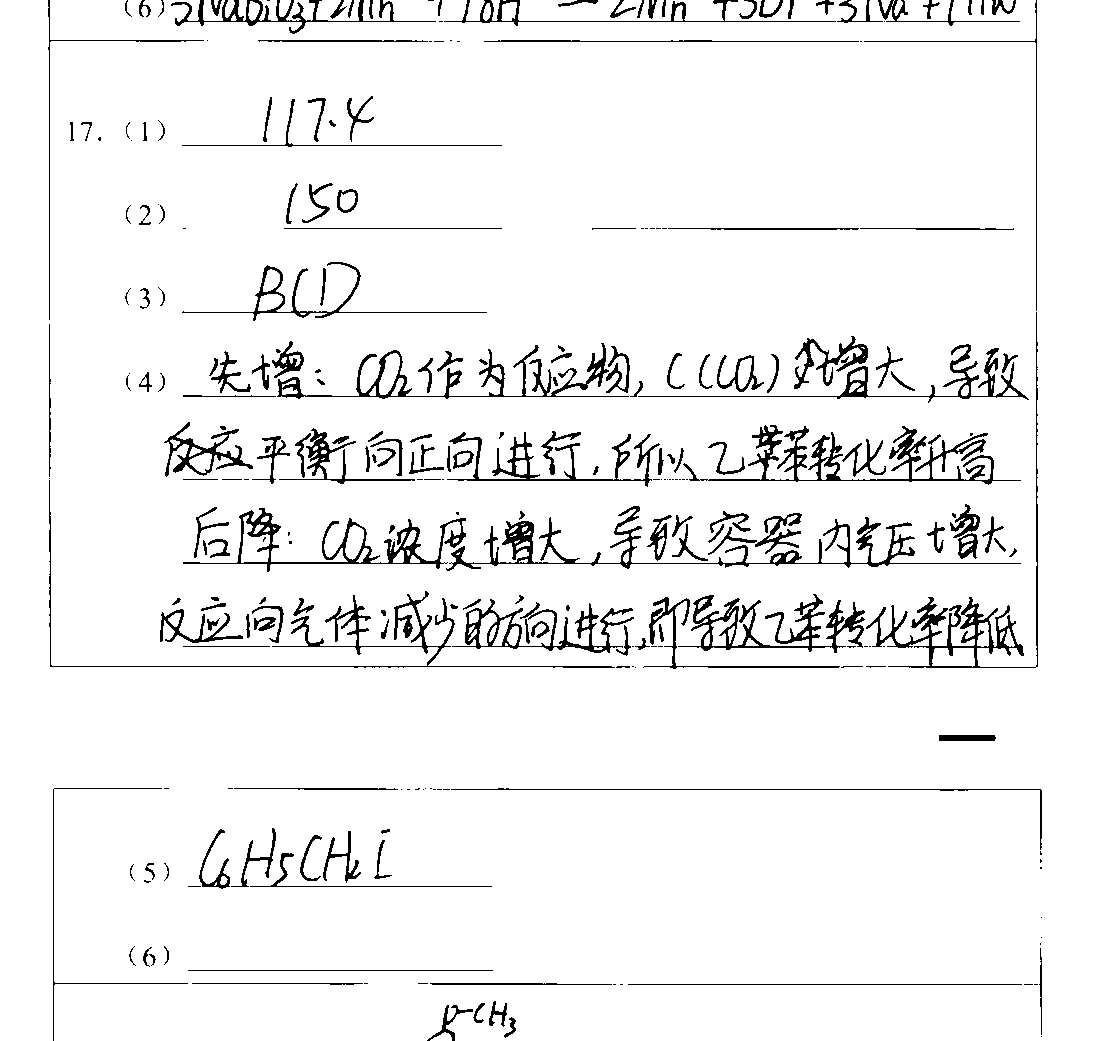 (6) 5NaBiO₃+2Mn +14H = 2Mn +5Bi +5Na +7H₂O
17. (1) 117.4
(2) 150
(3) BCD
(4) 先增：CO₂作为反应物，C(CO₂)增大，导致
平衡向正向进行，所以乙苯转化率升高
后降：CO₂浓度增大，导致容器内气压增大，
反应向气体减少的方向进行，即导致乙苯转化率降低
(5) C₆H₅CH₂I
(6)
CH₃